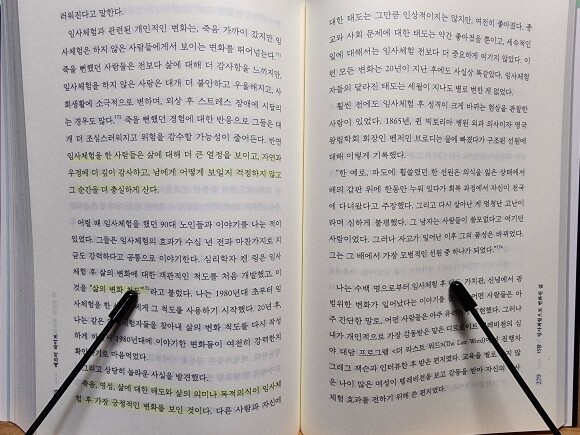 러워진다고 말한다.
임사체험과 관련된 개인적인 변화는, 죽음 가까이 갔지만 임
사체험은 하지 않은 사람들에게서 보이는 변화를 뛰어넘는다.
죽을 뻔했던 사람들은 전보다 삶에 대해 더 감사함을 느끼지만,
임사체험을 하지 않은 사람은 대개 더 불안하고 우울해지고, 사
회생활에 소극적으로 변하며, 외상 후 스트레스 장애에 시달리
는 경우도 많다. 죽을 뻔했던 경험에 대한 반응으로 그들은 대
개 더 조심스러워지고 위험을 감수할 가능성이 줄어든다. 반면
임사체험을 한 사람들은 삶에 대해 더 큰 열정을 보이고, 자연과
우정에 더 깊이 감사하고, 남에게 어떻게 보일지 걱정하지 않고
그 순간을 더 충실하게 산다.
어릴 때 임사체험을 했던 90대 노인들과 이야기를 나눈 적이
있었다. 그들은 임사체험의 효과가 수십 년 전과 마찬가지로 지
금도 강력하다고 공통으로 이야기한다. 심리학자 켄 링은 임사
체험 후 삶의 변화에 대한 객관적인 척도를 처음 개발했고, 이
것을 "삶의 변화
라고 불렀다. 나는 1980년대 초부터 임
사체험을 한
에게 그 척도를 사용하기 시작했다. 20년 후,
나는 같은
체험자들을 찾아내 삶의 변화 척도를 다시 작성
하게 하
1980년대에 이야기한 변화들이 여전히 강력한지
확인
기로 마음먹었다.
그리고 상당히 놀라운 사실을 발견했다.
죽음, 영성, 삶에 대한 태도와 삶의 의미나 목적의식이 임사체
험 후 가장 긍정적인 변화를 보인 것이다. 다른 사람과 자신에
대한 태도는 그만큼 인상적이지는 않지만, 여전히 좋아졌다. 종
교와 사회 문제에 대한 태도는 약간 좋아졌을 뿐이고, 세속적인
일에 대해서는 임사체험 전보다 더 중요하게 여기지 않았다. 이
런 모든 변화는 20년이 지난 후에도 사실상 똑같았다. 임사체험
자들의 달라진 태도는 세월이 지나도 별로 변한 게 없었다.
훨씬 전에도 임사체험 후 성격이 크게 바뀌는 현상을 관찰한
사람이 있었다. 1865년, 런던 빅토리아 병원 외과 의사이자 영국
왕립학회 회장인 벤저민 브로디는 물에 빠졌다가 구조된 선원에
대해 이렇게 기록했다.
"한 예로, 파도에 휩쓸렸던 한 선원은 의식을 잃은 상태에서
배의 갑판 위에 한동안 누워 있다가 회복 과정에서 자신이 천국
에 다녀왔다고 주장했다. 그리고 다시 살아난 게 엄청난 고난이
라며 심하게 불평했다. 그 남자는 사람들이 쓸모없다고 여기던
사람이었다. 그러나 사고가 일어난 이후 그의 품성은 바뀌었다.
그는 그 배에서 가장 모범적인 선원 중 하나가 되었다."
나는 수백 명으로부터 임사체험 후
가치관, 신념에서 광
범위한 변화가 일어났다는 이야기를
어떤 사람들은 아
주 간단한 말로, 어떤 사람들은
했다. 그러나
내가 개인적으로 가장 감동받은 말은
의
야 대담 프로그램 <더 라스트 워드>(The Last Word)
진행자
그레그 잭슨과 인터뷰한 후 받은 편지였다. 교육을 별로 받지 않
은 나이 많은 여성이 텔레비전을 보고 감동을 받아 자신의
체험 효과를 전하기 위해 쓴 편지였다.
279